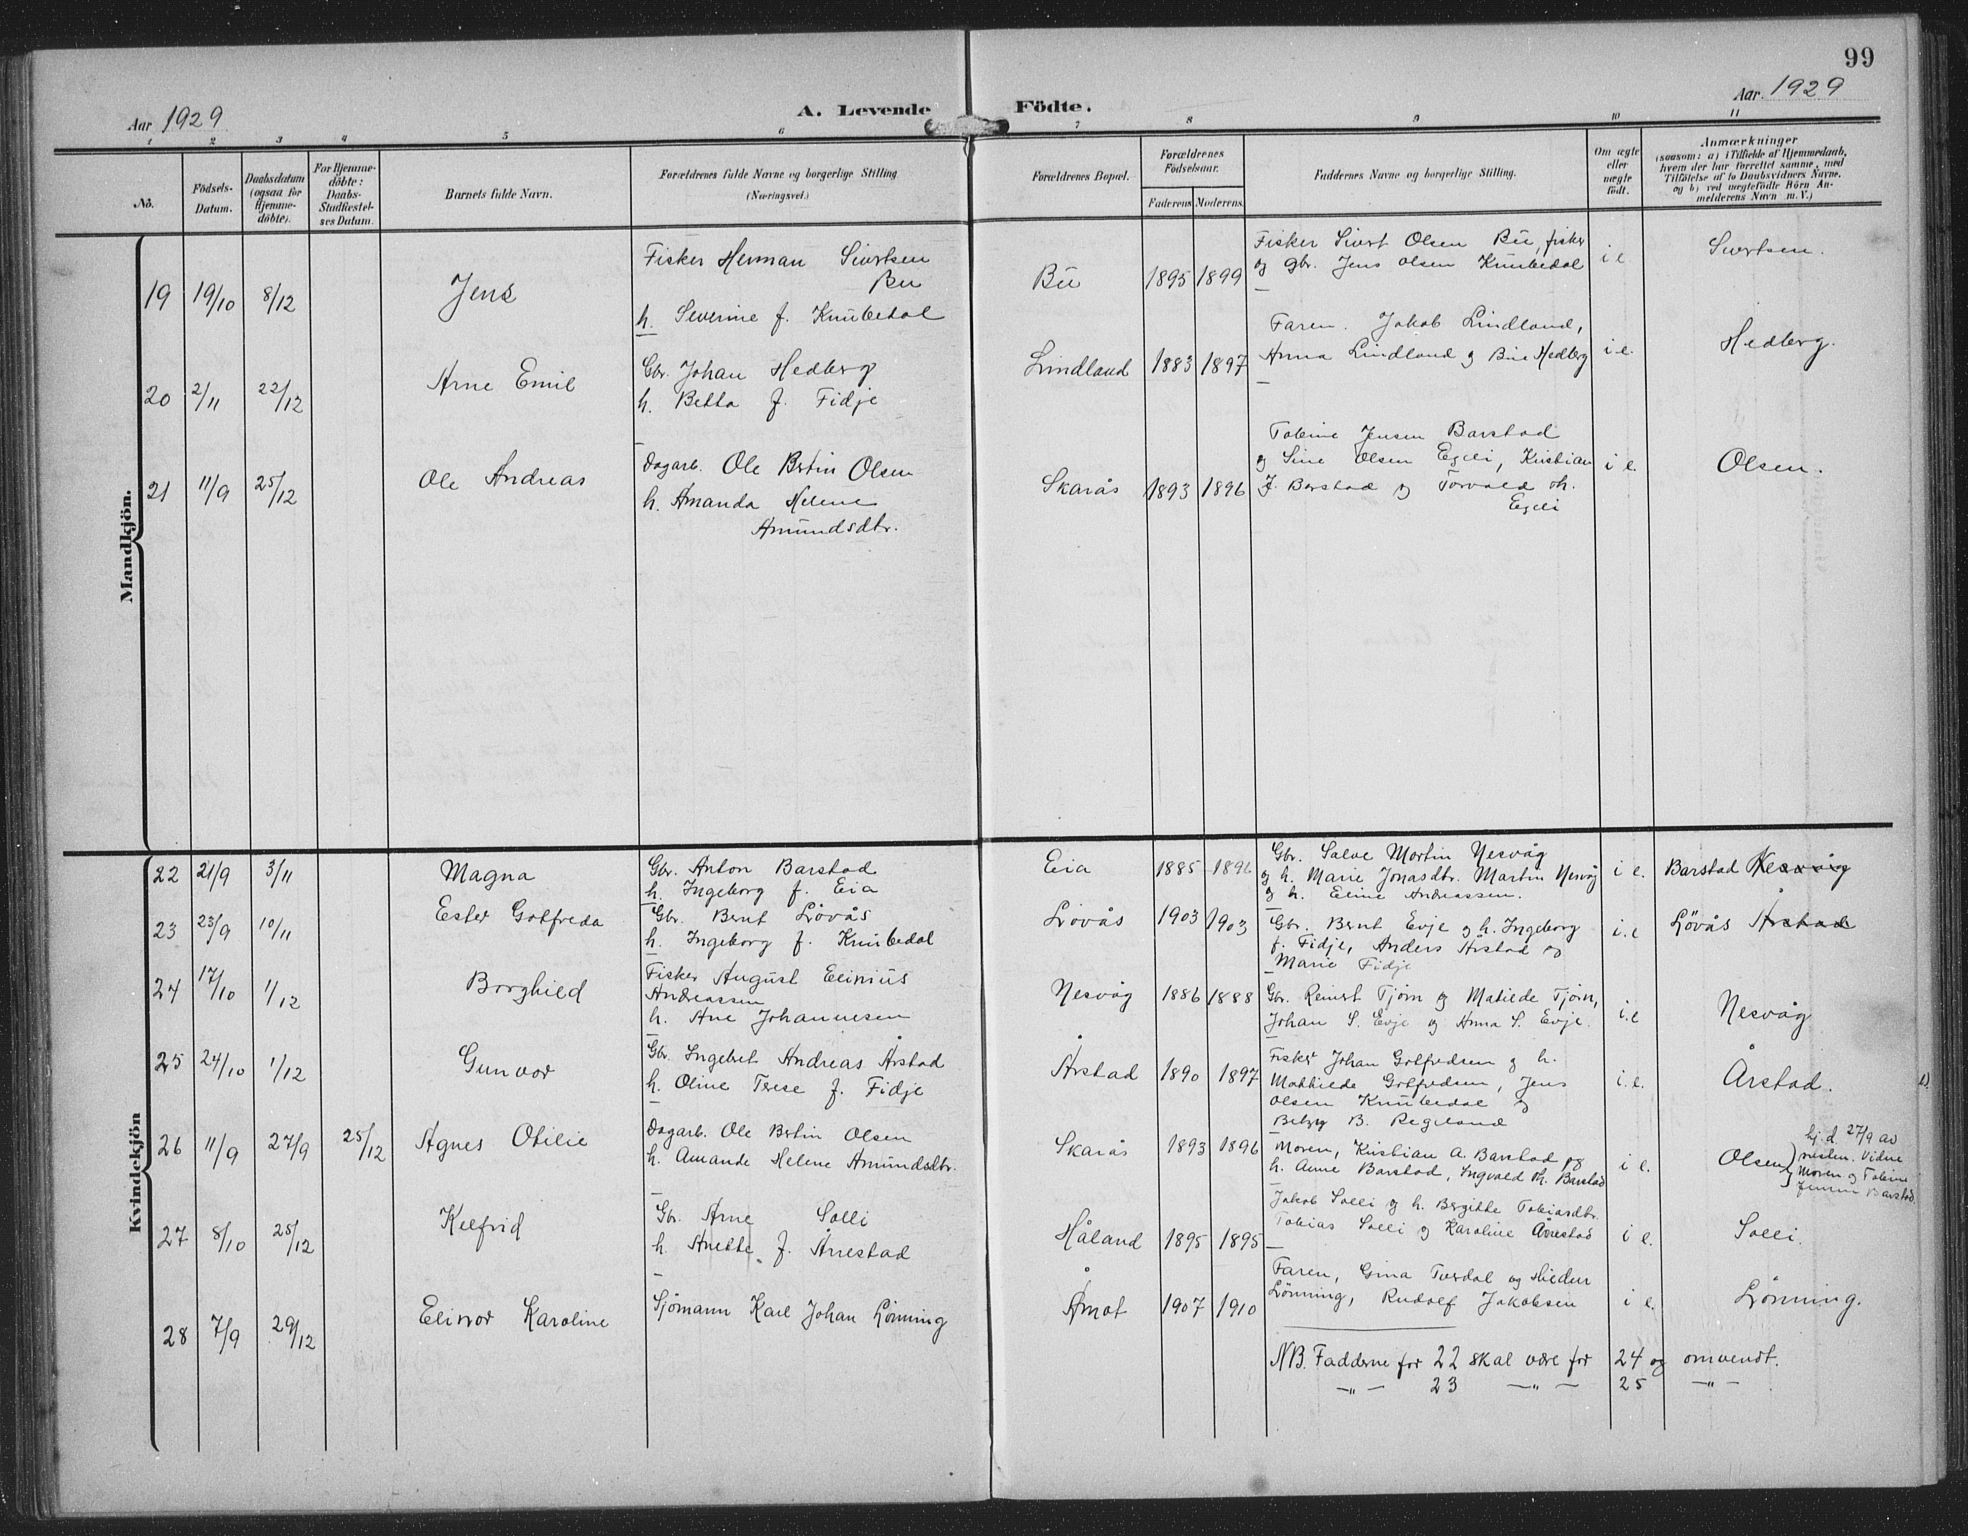 99
Aar 1929
A. Levende Födte.
Aar 1929
1 2 3 4 5 6 7 8 9 10 11
No.
Födsels-Datum.
Daabsdatum (ogsaa for Hjemme-döbte).
For Hjemme-döbte: Daabs-Stadfæstel-ses Datum.
Barnets fulde Navn.
Forældrenes fulde Navne og borgerlige Stilling
(Næringsvei.)
Forældrenes Bopæl.
Forældrenes Födselsaar.
Faderens Moderens
Faddernes Navne og borgerlige Stilling.
Om ægte eller uægte födt.
Anmærkninger
(saasom: a) i Tilfælde af Hjemmedaab,
hvem der har forrettet samme, med
Tilföielse af to Daabsvidners Navne,
og b) ved uægtefödte Börn An-
melderens Navn m. V.)
Mandkjön.
19 19/10 8/12 Jens
Fisker Herman Sivertsen
Bu
h. Severine f. Knubedal
Bu 1895 1899
Fisker Sivert Olsen Bu, fisker
og gbr. Jens Olsen Knubedal
i e Sivertsen.
20 2/11 22/12 Arne Emil
Gbr. Johan Hedberg
h. Betta f. Fidje
Lindland 1883 1897
Faren. Jakob Lindland,
Anna Lindland og Hedberg
i e. Hedberg.
21 11/9 25/12 Ole Andreas
Dagarb. Ole Bertin Olsen
h. Amanda Helene
Amundsdtr.
Skarås 1893 1896
Tobine Jensen Barstad
og Sine Olsen Egeli, Kristian
J. Barstad og Torvald Th.
Egeli
i e. Olsen.
Kvindekjön
22 21/9 3/11 Magna
Gbr. Anton Barstad
h. Ingeborg f. Eia
Eia 1885 1896
Gbr. Salve Martin Nesvåg
og h. Marie Jonasdtr. Martin Nesvåg
og h. Eline Andreassen.
i e. Barstad Nesvåg
23 23/9 10/11 Ester Gotfreda
Gbr. Bernt Løvås
h. Ingeborg f. Knubedal
Løvås 1903 1903
Gbr. Bernt Evje og h. Ingeborg
f. Fidje, Anders Årstad og
Marie Fidje
i. e Lövås Årstad
24 17/10 1/12 Borghild
Fisker August Elinius
Andreassen
h. Ane Johannesen
Nesvåg 1886 1888
Gbr. Reinert Tjørn og Matilde Tjørn,
Johan S. Evje og Anna S. Evje.
i. e Nesvåg
25 24/10 1/12 Gunvor
Gbr. Ingebret Andreas Årstad
h. Oline Terese f. Fidje
Årstad 1890 1897
Fisker Johan Gotfredsen og h.
Mathilde Gotfredsen, Jens
Olsen Knubedal og
Betzy B. Regeland
i. e. Årstad.
26 11/9 27/9 25/12 Agnes Otilie
Dagarb. Ole Bertin Olsen
h. Amande Helene Amundsdtr.
Skarås 1893 1896
Moren, Kristian A. Barstad og
h. Anne Barstad, Ingvald Th. Barstad
i e. Olsen
hj. d. 27/9 av
Vidne
Moren og Tobine
Jensen Barstad
27 8/10 25/12 Kelfrid
Gbr. Arne Solli
h. Anette f. Årrestad
Håland 1895 1895
Jakob Solli og h. Bergitte Tobiasdtr.
Tobias Solli og Karoline Årrestad
i e. Solli.
28 7/9 29/12 Elinor Karoline
Sjömann Karl Johan Lønning
Åmot 1907 1910
Faren, Gina Tverdal og
Lønning, Rudolf Jakobsen
i e. Lønning.
NB. Fadderne for 22 skal være for 24 og omvendt.
—„— 23 —„— 25 —„—